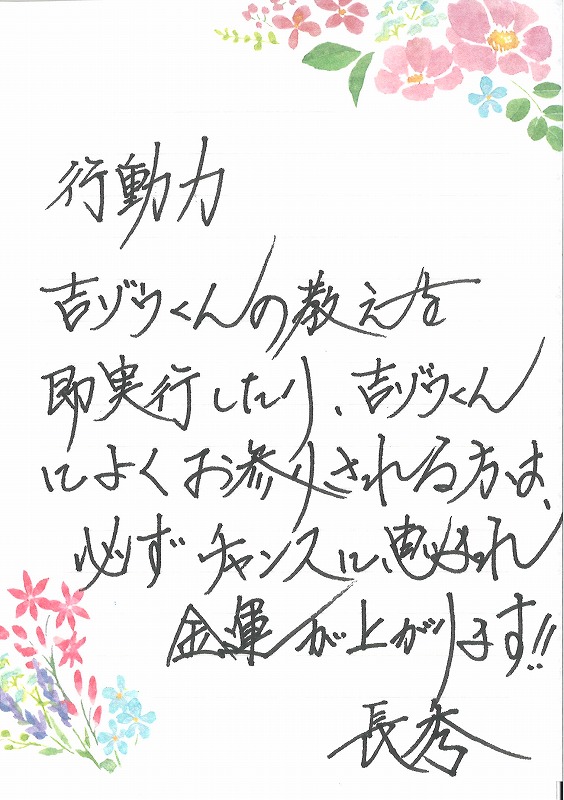 行動力
吉ゾウくんの教えを
即実行したり、吉ゾウくん
によくお参りされる方は、
必ずチャンスに恵まれ
金運が上がります!!
長秀